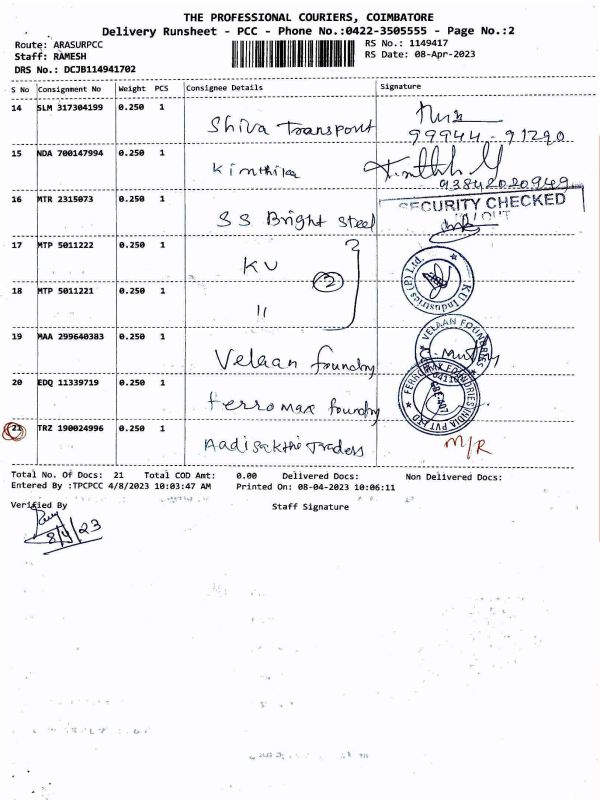 THE PROFESSIONAL COURIERS, COIMBATORE
Delivery Runsheet - PCC - Phone No.:0422-3505555 - Page No.:2
Route: ARASURPCC RS No.: 1149417
Staff: RAMESH RS Date: 08-Apr-2023
DRS No.: DCJB114941702
S No Consignment No Weight PCS Consignee Details Signature
14 SLM 317304199 0.250 1 Shiva Transport 99944-91290
15 NDA 700147994 0.250 1 Kinthika 9384202094
16 MTR 2315073 0.250 1 SS Bright Steel SECURITY CHECKED
IN / OUT
17 MTP 5011222 0.250 1 KU 2 KU Industries (P) Ltd.
18 MTP 5011221 0.250 1 "
19 MAA 299640383 0.250 1 Velaan foundry VELAAN FOUNDRIES
20 EDQ 11339719 0.250 1 Ferromax foundry FERROMAX FOUNDRIES INDIA PVT LTD
21 TRZ 190024996 0.250 1 Aadisakthi Traders M/R
Total No. Of Docs: 21 Total COD Amt: 0.00 Delivered Docs: Non Delivered Docs:
Entered By :TPCPCC 4/8/2023 10:03:47 AM Printed On: 08-04-2023 10:06:11
Verified By Staff Signature
8/4/23